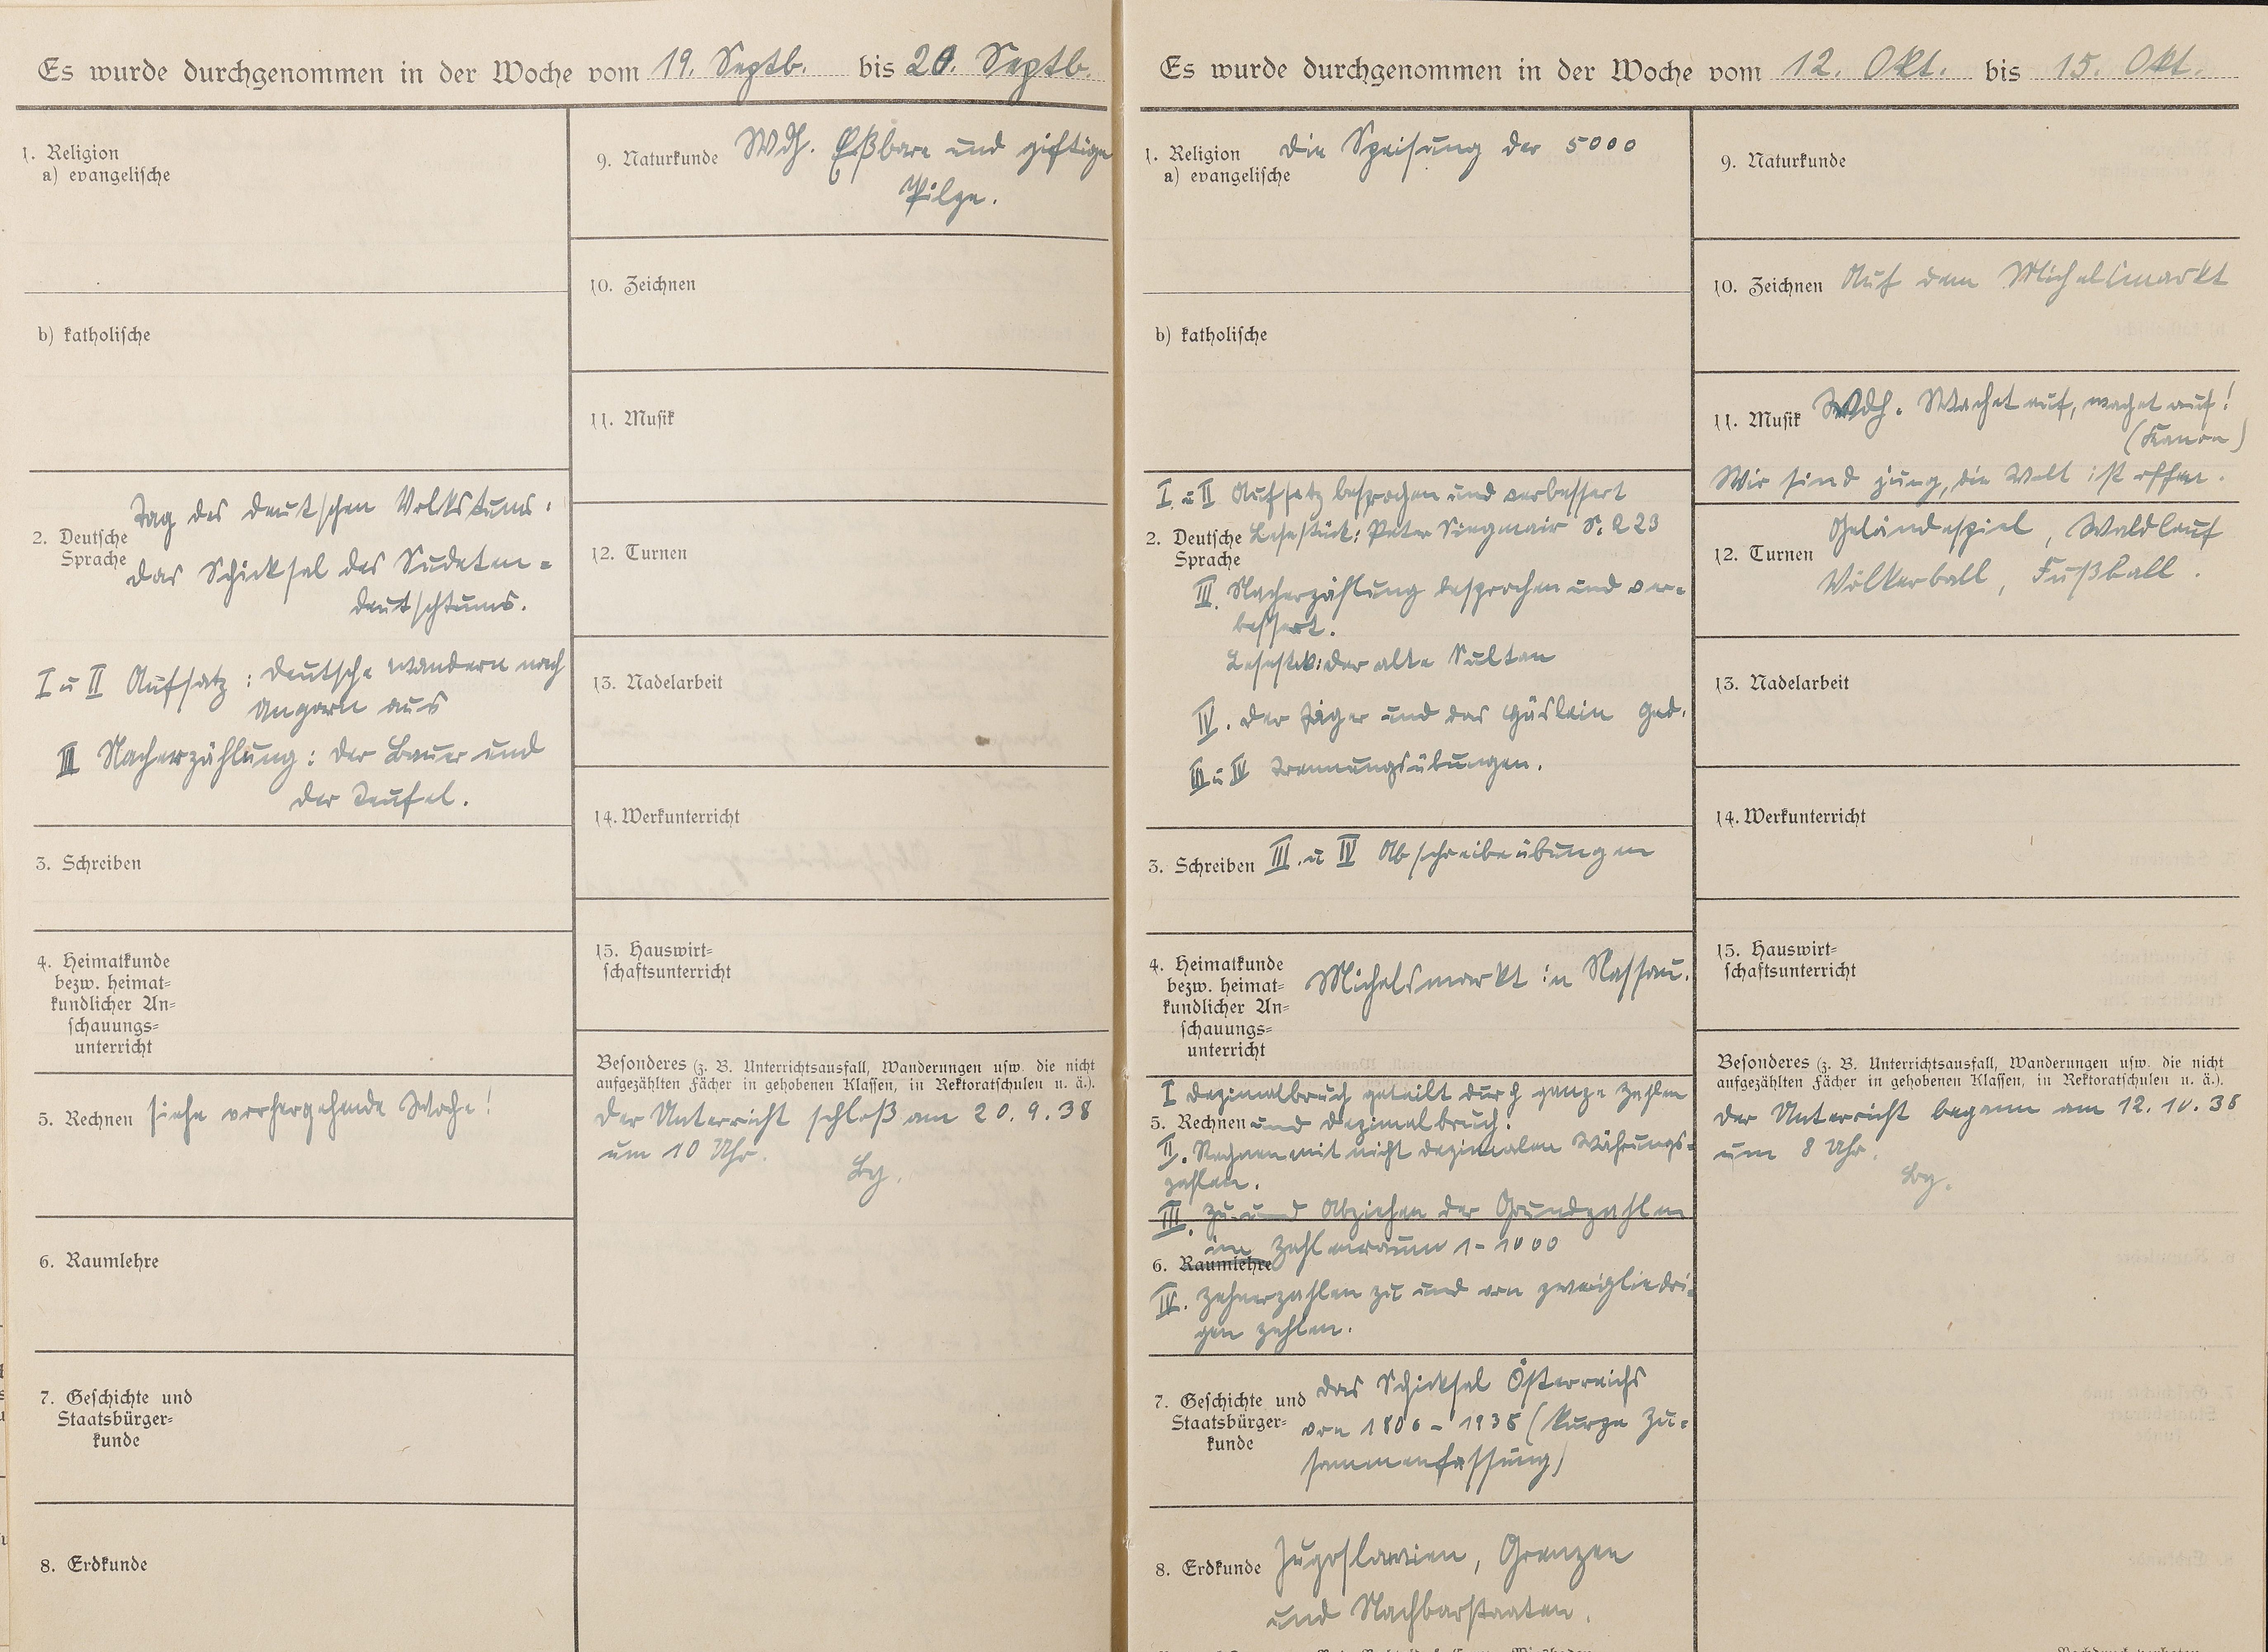 Es wurde durchgenommen in der Woche vom 19. Septb. bis 20. Septb.
1. Religion
a) evangelische
b) katholische
2. Deutsche Sprache
Tag des deutschen Volkstums.
Das Schicksal des Sudeten=
deutschtums.
I u II Aufsatz: Deutsche wandern nach
Ungarn aus
III Nacherzählung: Der Bauer und
der Teufel.
3. Schreiben
4. Heimatkunde
bezw. heimat=
kundlicher An=
schauungs=
unterricht
5. Rechnen siehe vorhergehende Woche!
6. Raumlehre
7. Geschichte und
Staatsbürger=
kunde
8. Erdkunde
9. Naturkunde Wdh. Eßbare und giftige
Pilze.
10. Zeichnen
11. Musik
12. Turnen
13. Nadelarbeit
14. Werkunterricht
15. Hauswirt=
schaftsunterricht
Besonderes (z. B. Unterrichtsausfall, Wanderungen usw. die nicht
aufgezählten Fächer in gehobenen Klassen, in Rektoratschulen u. ä.).
Der Unterricht schloß am 20. 9. 38
um 10 Uhr.
By.
Es wurde durchgenommen in der Woche vom 12. Okt. bis 15. Okt.
1. Religion Die Speisung der 5000
a) evangelische
b) katholische
I. u II Aufsatz besprochen und verbessert
2. Deutsche Sprache
Lesestück: Peter Siegmair S. 223
III. Nacherzählung besprochen und ver=
bessert.
Lesestck: Der alte Sultan
IV. Der Jäger und das Häslein Ged.
III u IV Trennungsübungen.
3. Schreiben III. u IV Abschreibeübungen
4. Heimatkunde
bezw. heimat=
kundlicher An=
schauungs=
unterricht
Michelsmarkt in Nassau.
I Dezimalbruch geteilt durch ganze Zahlen
5. Rechnen und Dezimalbruch.
II. Rechnen mit nicht dezimalen Währungs=
zahlen.
III. Zu- und Abziehen der Grundzahlen
im Zahlenraum 1-1000
6. Raumlehre
IV. Zehnerzahlen zu und von zweigliedri=
gen Zahlen.
7. Geschichte und
Staatsbürger=
kunde
Das Schicksal Österreichs
von 1806 - 1938 (kurze Zu=
sammenfassung)
8. Erdkunde Jugoslawien, Grenzen
und Nachbarstaaten.
9. Naturkunde
10. Zeichnen Auf dem Michelsmarkt
11. Musik Wdh. Wachet auf, wachet auf!
(Kanon)
Wir sind jung, die Welt ist offen.
12. Turnen Geländespiel, Waldlauf
Völkerball, Fußball.
13. Nadelarbeit
14. Werkunterricht
15. Hauswirt=
schaftsunterricht
Besonderes (z. B. Unterrichtsausfall, Wanderungen usw. die nicht
aufgezählten Fächer in gehobenen Klassen, in Rektoratschulen u. ä.).
Der Unterricht begann am 12. 10. 38
um 8 Uhr.
By.